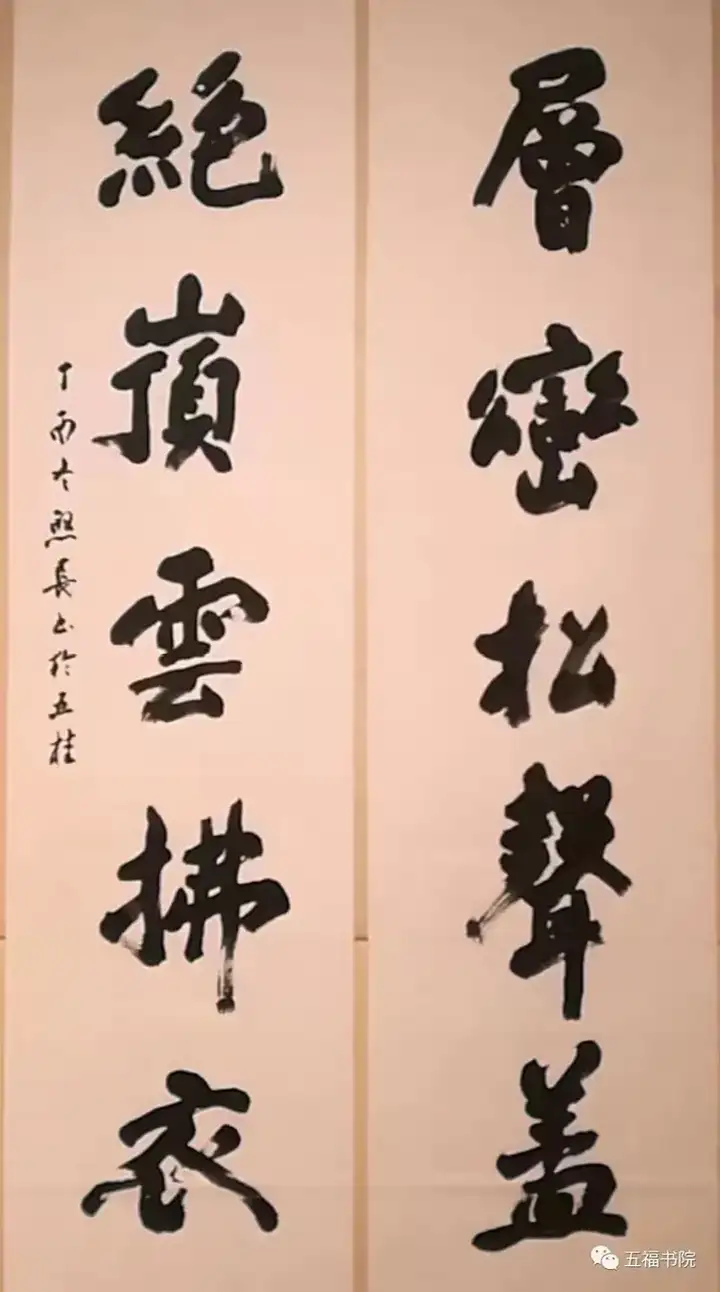 層巒松聲盖
絕嶺雲拂衣
丁酉冬煕長书於五桂
五福书院